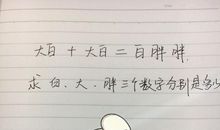 大白 + 大白 = 白胖胖,
求 白、大、胖三个数字分别是多少